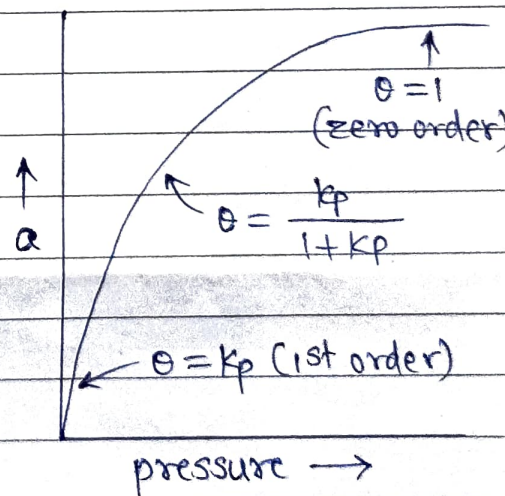 θ = 1
(zero order)
↑
a
θ = kp / 1 + kp
θ = kp (1st order)
pressure →